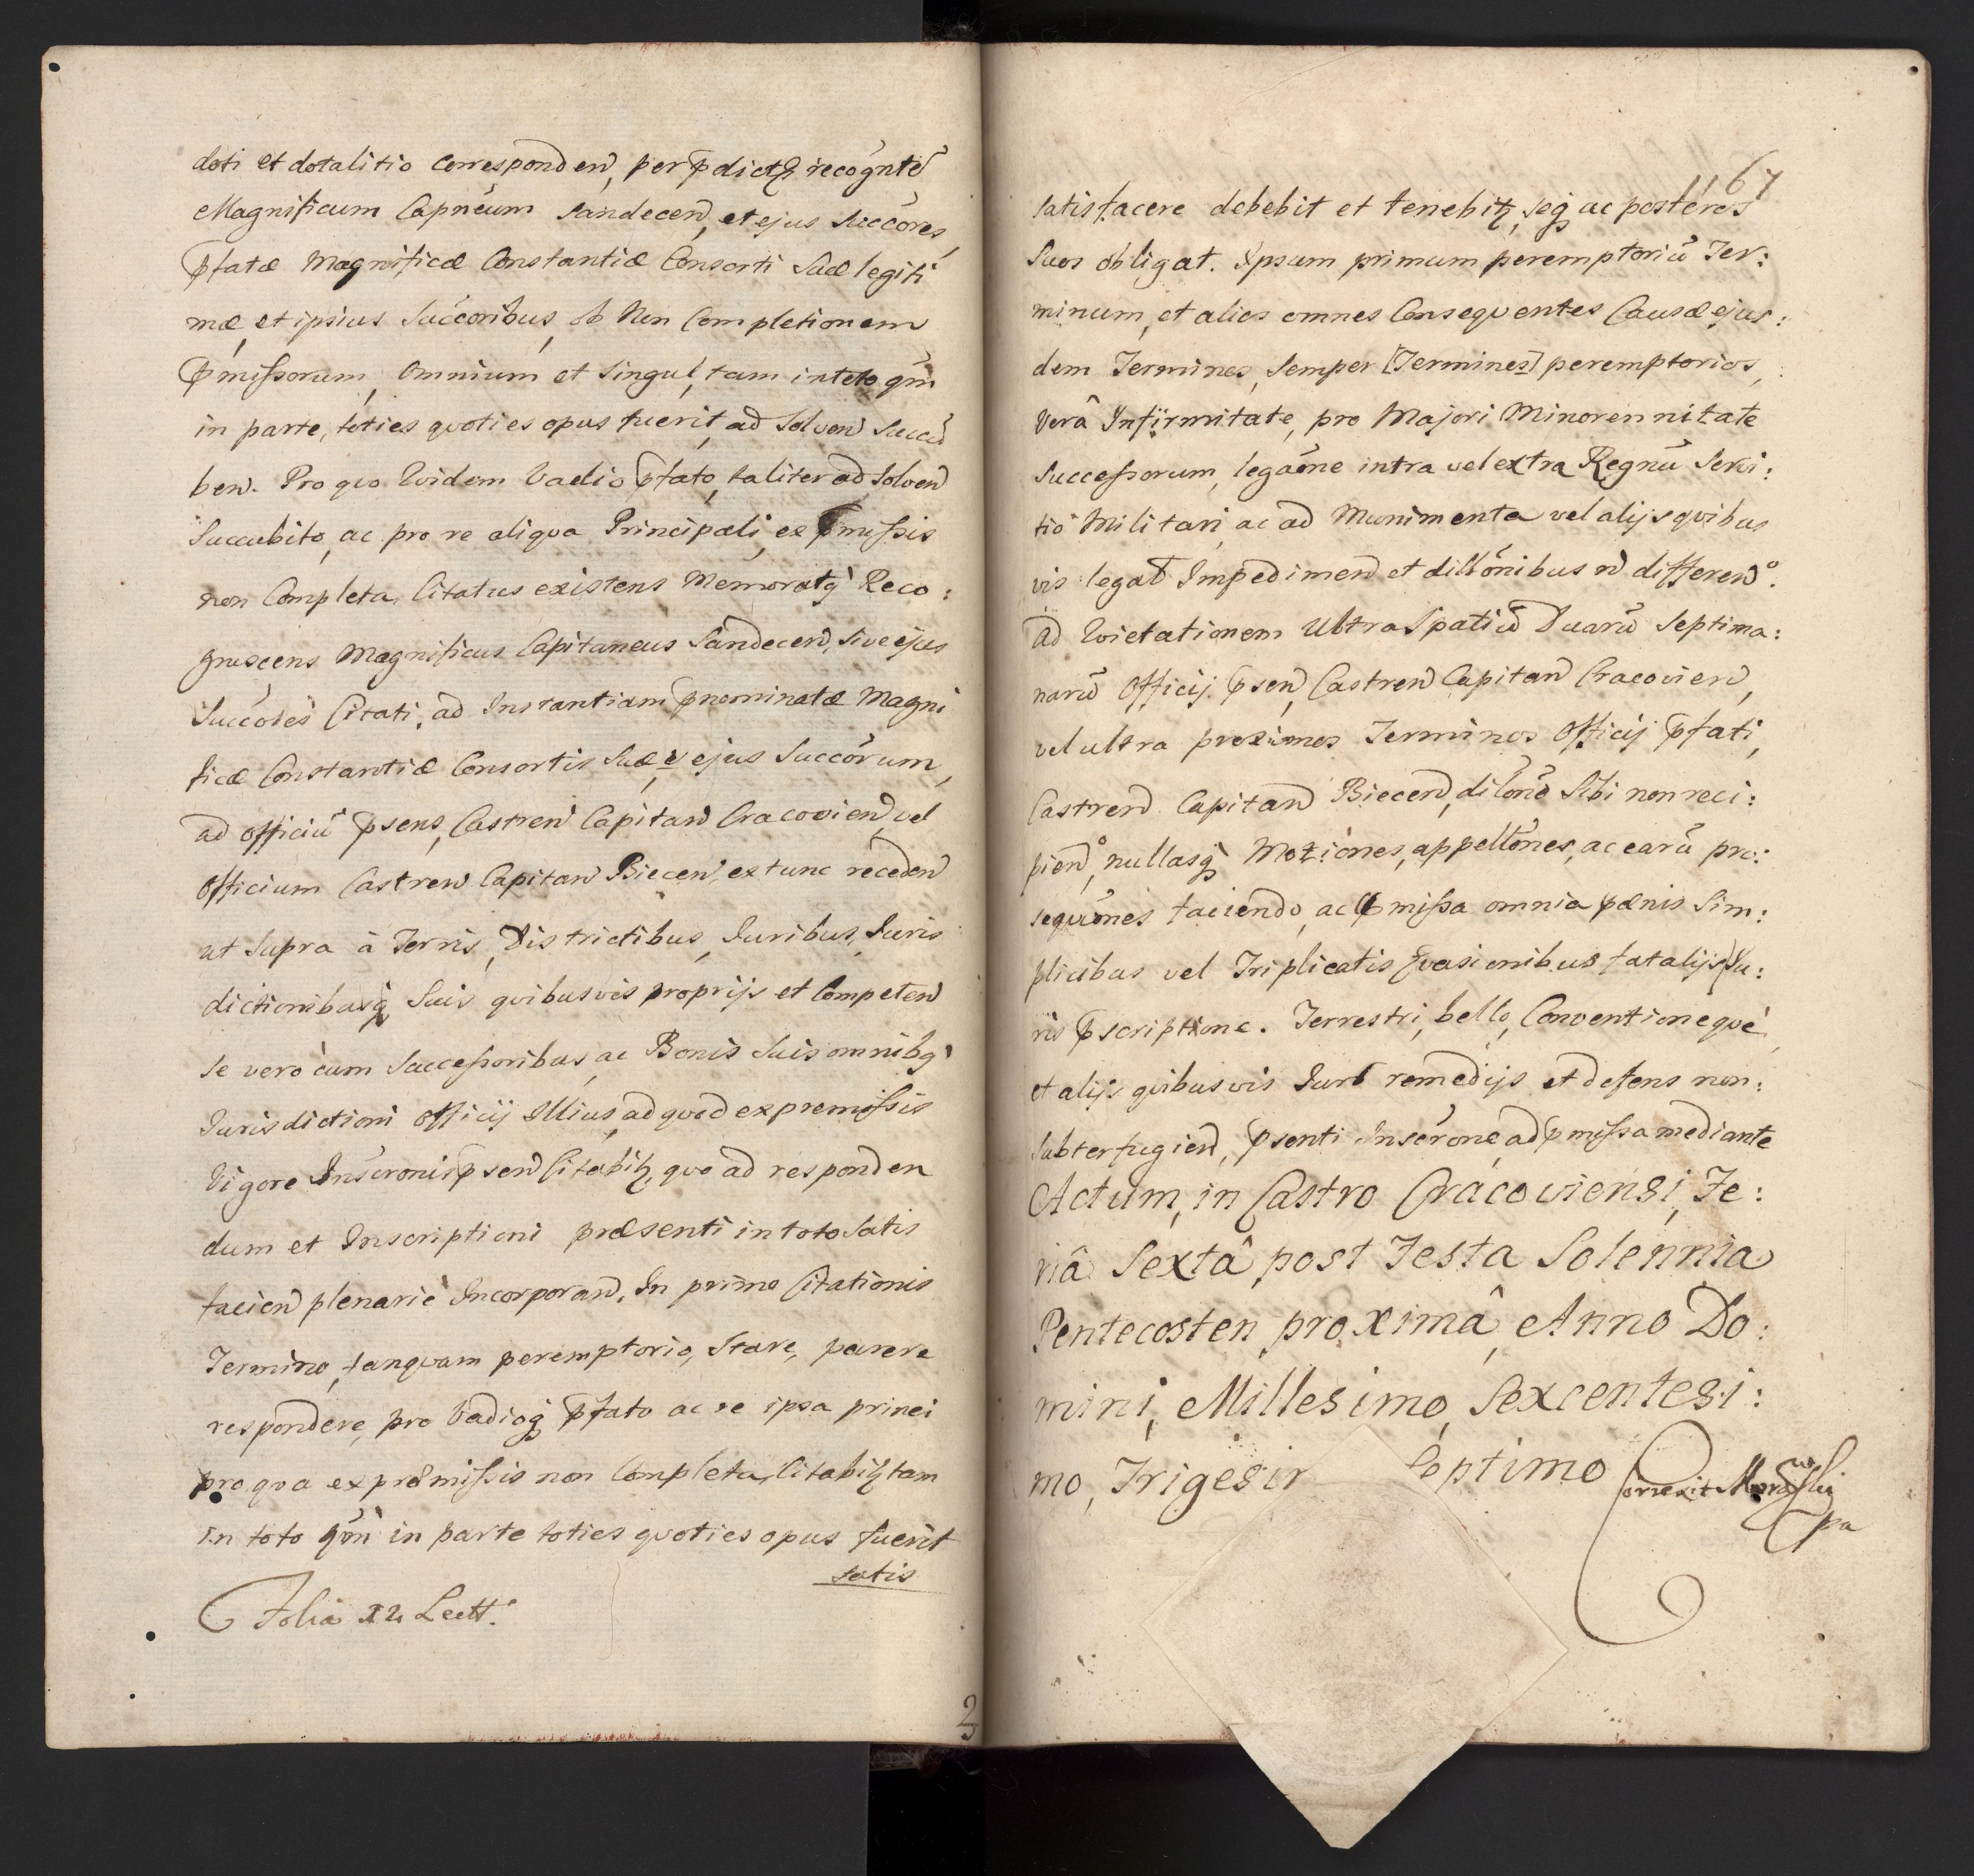 doti et dotalitio Corresponden, per p̄dictū recógntē
Magnificum Capnéum Sandecen, et ejus Succóres,
p̄fatæ Magnificæ Constantiæ Consorti Suæ legiti
mæ, et ipsius Succóribus, ob Non Completionem
p̄mißorum, Omnium et Singul, tam in toto qm̄
in parte, toties quoties opus fuerit, ad Solven Succū
ben. Pro quo Quidem Vadio p̄fato, taliter ad Solven
Succubito, ac pro re aliqua Principali, ex p̄mißis
non Completa, Citatus existens Memoratq̀ Reco:
gnoscens Magnificus Capitaneus Sandecen, Sive ejus
Succóres Citati, ad Instantiam p̄nominatæ Magni
ficæ Constantiæ Consortis Suæ, v ejus Succórum,
ad officiū p̄sens, Castren Capitan Cracovien, vel
Officium Castren Capitan Biecen, extunc receden
ut Supra à Terris, Districtibus, Juribus, Juris
dictionibusq, Suis quibusvis proprijs et Competen
Se verò cum Succeßoribus, ac Bonis Suis omnibq̀
Jurisdictioni officij Illius, ad quod ex premißis
Vigore Inscronis p̄sen Citabitʒ, quo ad responden
dum et Inscriptioni præsenti in toto Satis
facien plenariè Incorporan, In primo Citationis
Termino, tanquam peremptorio, Stare, parere
respondere, pro Vadioq p̄fato ac re ipsa princi
pro qua ex præmißis non Completa, Citabitʒ tam
in toto qm̄ in parte toties quoties opus fuerit
satis
Folia XX Lectt.
2
1167
Satisfacere debebit et tenebitʒ, seq ac postéros
Suos obligat. Ipsum primum peremptoriū Ter:
minum, et alios omnes Consequentes Causæ ejus:
dem Terminos, Semper [Terminos] peremptorios,
Verâ Infirmitate, pro Majori Minorennitate
Succeßorum, legaōne intra vel extra Regnū Servi:
tio Militari, ac ad Munimenta vel alijs quibus
vis legal Impedimen et dillónibus n̄ differenº.
Ad Quietationem Ultra Spatiū Duarū Septima:
narū Officij p̄sen, Castren Capitan Cracovien,
vel ultra proximos Terminos Officij p̄fati,
Castren Capitan Biecen, dilōnē Sibi non reci:
pienº, nullasq̀ Motiónes, appellónes, ac earū pro:
sequūónes faciendo, ac p̄mißa omnia pænis Sim:
plicibus vel Triplicatis Evasionibus fatalijs Ju:
ris p̄scriptione. Terrestri, bello, Conventioneque
et alijs quibusvis Jurl remedijs et defens non:
Subterfugien, p̄senti Inscrónē ad p̄mißa mediante
Actum, in Castro Cracoviensi, Fe:
riâ Sextâ post Festa Solennia
Pentecosten proximâ, Anno Do:
mini, Millesimo Sexcentesi:
mo, Trigesi Septimo Correxit